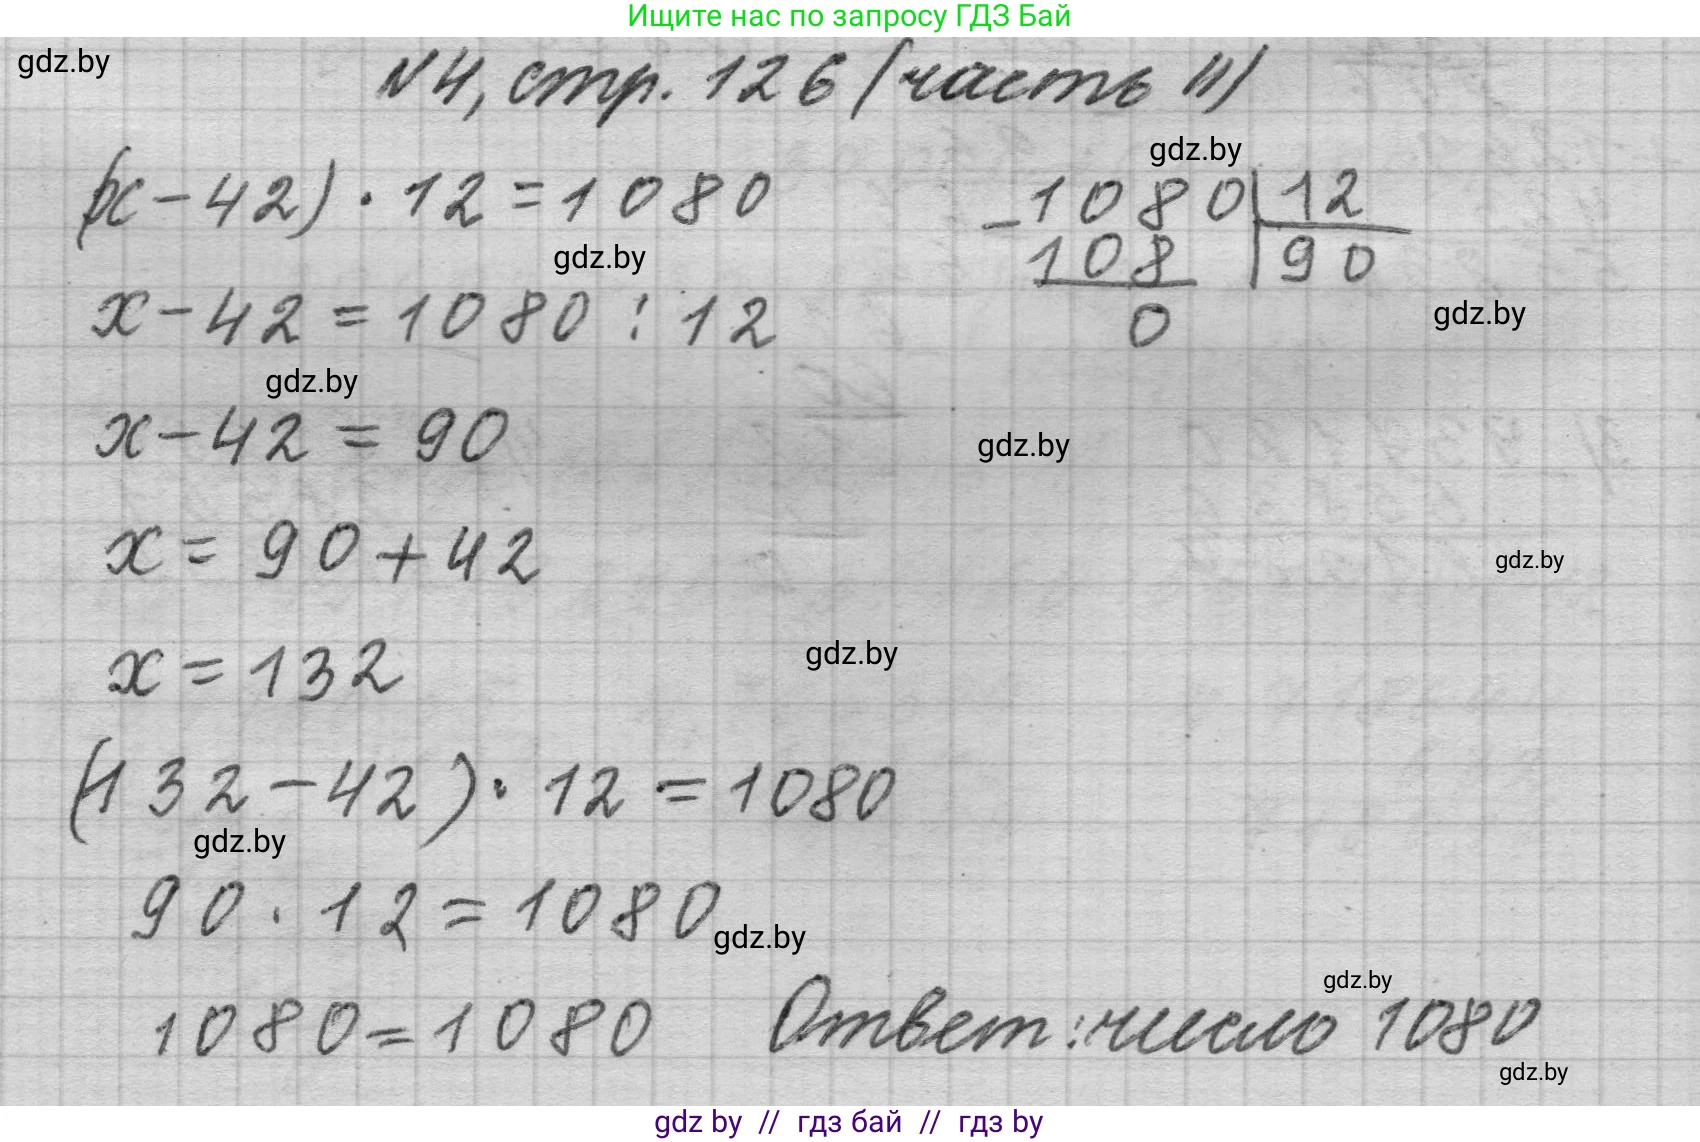 Ищите нас по запросу ГДЗ Бай
gdz.by
№4, стр. 126 (часть II)
gdz.by
(x-42)·12=1080
-1080|12
108 |90
0
gdz.by
gdz.by
x-42=1080:12
gdz.by
x-42=90
gdz.by
x=90+42
gdz.by
x=132
gdz.by
(132-42)·12=1080
gdz.by
90·12=1080
gdz.by
gdz.by
1080=1080 Ответ: число 1080
gdz.by
gdz by // гдз бай // gdz by